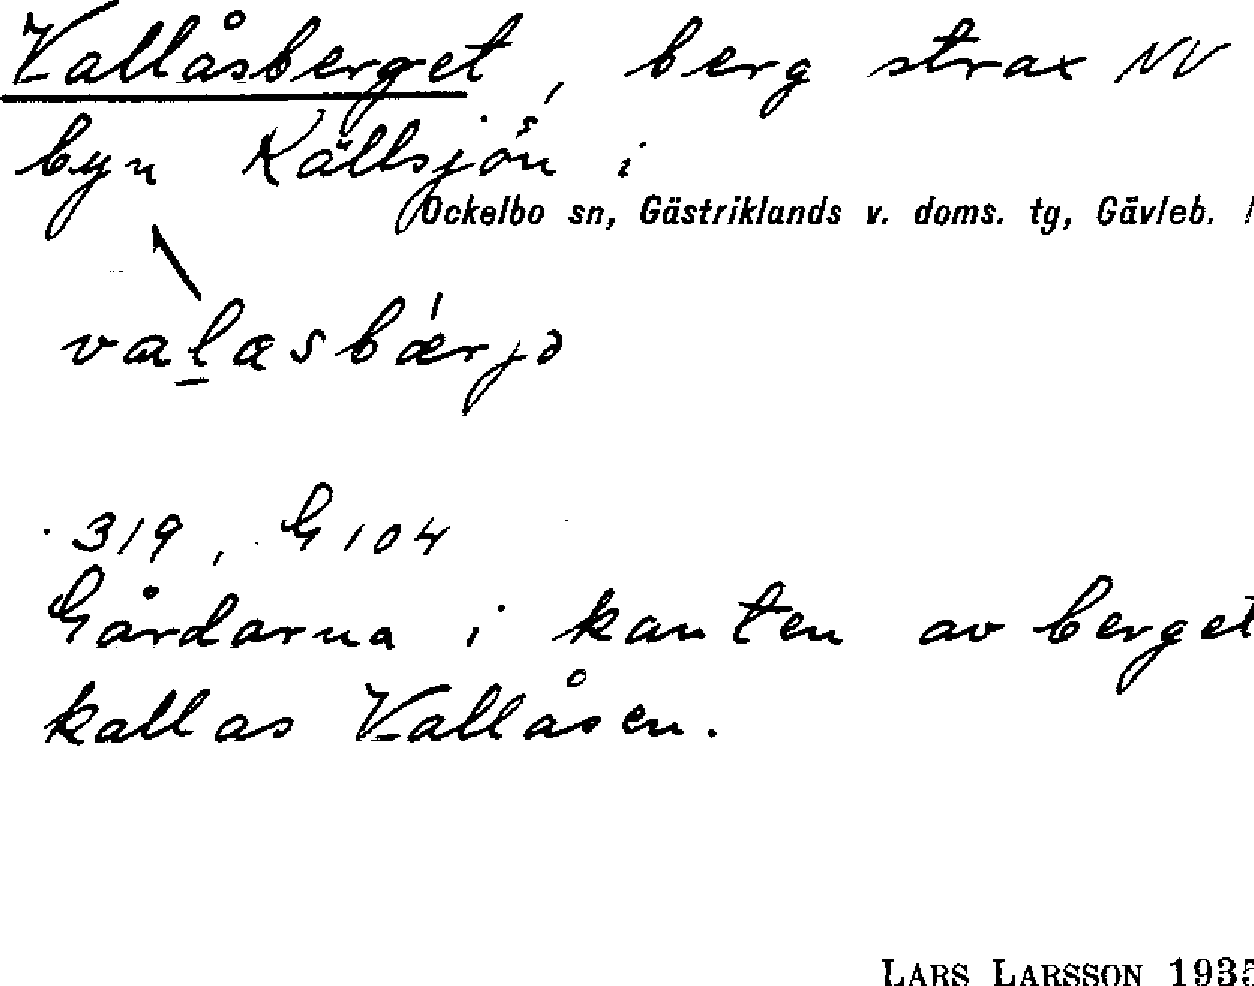 Vallåsberget, berg strax NV
byn Källsjön i
Ockelbo sn, Gästriklands v. doms. tg, Gävleb. l
valasbærjə
319, G 104
Gårdarna i kanten av berget
kallas Vallåsen.
LARS LARSSON 1935